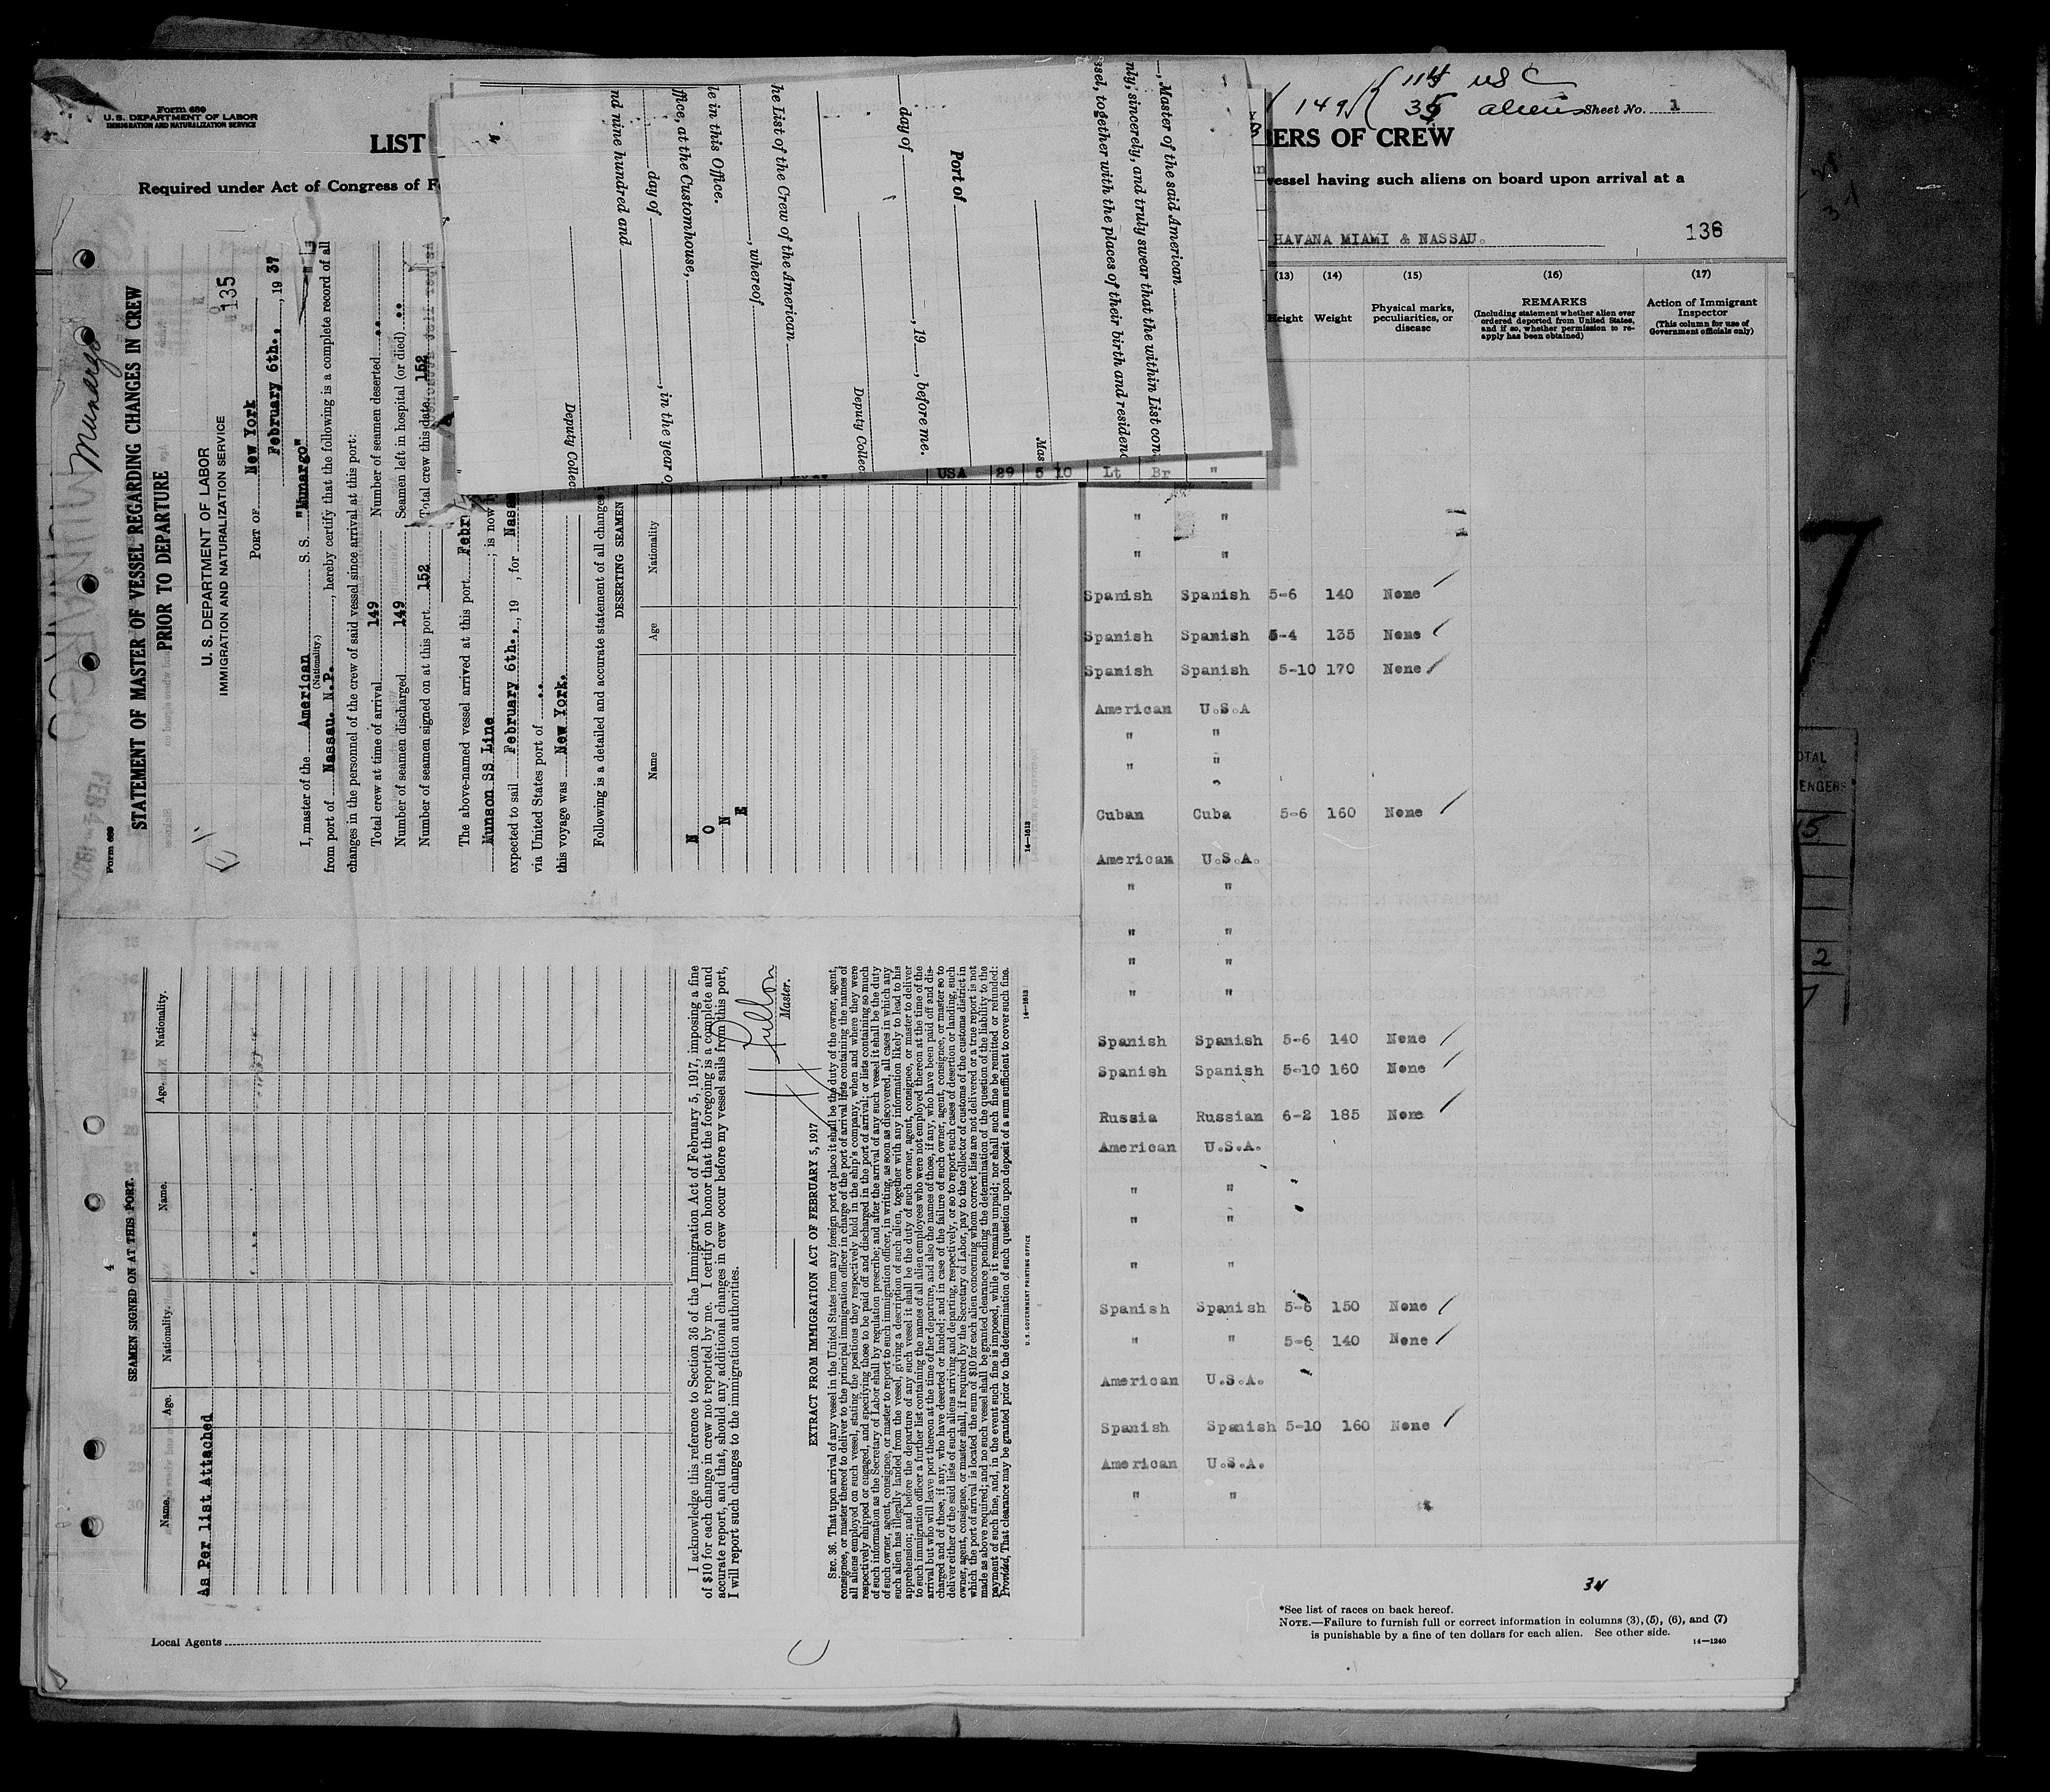 Form 689
U.S. DEPARTMENT OF LABOR
IMMIGRATION AND NATURALIZATION SERVICE
LIST
Required under Act of Congress of
149 { 114 USC
35 aliens
Sheet No. 1
ERS OF CREW
vessel having such aliens on board upon arrival at a
HAVANA MIAMI & NASSAU.
136
(13) (14) (15) (16) (17)
Height Weight Physical marks, peculiarities, or disease
REMARKS
(Including statement whether alien ever ordered deported from United States, and if so, whether permission to re-apply has been obtained)
Action of Immigrant Inspector
(This column for use of Government officials only)
USA 29 5 10 Lt Br "
" "
" "
Spanish Spanish 5-6 140 None
Spanish Spanish 5-4 135 None
Spanish Spanish 5-10 170 None
American U.S.A
" "
" "
"
Cuban Cuba 5-6 160 None
American U.S.A.
" "
" "
" "
" "
Spanish Spanish 5-6 140 None
Spanish Spanish 5-10 160 None
Russia Russian 6-2 185 None
American U.S.A.
" "
" "
" "
Spanish Spanish 5-6 150 None
" " 5-6 140 None
American U.S.A.
Spanish Spanish 5-10 160 None
American U.S.A.
" "
34
*See list of races on back hereof.
NOTE.—Failure to furnish full or correct information in columns (3), (5), (6), and (7)
is punishable by a fine of ten dollars for each alien. See other side.
14—1240
Local Agents
, Master of the said American
nly, sincerely, and truly swear that the within List con
ssel, together with the places of their birth and residen
Mas
Port of
day of , 19 , before me.
Deputy Collec
he List of the Crew of the American
, whereof
le in this Office.
ffice, at the Customhouse,
day of , in the year o
nd nine hundred and
Deputy Collec
Munargo
Form 689
STATEMENT OF MASTER OF VESSEL REGARDING CHANGES IN CREW
PRIOR TO DEPARTURE
U. S. DEPARTMENT OF LABOR
IMMIGRATION AND NATURALIZATION SERVICE
135
PORT OF New York
February 6th., , 19 37
I, master of the American S. S. "Munargo"
(Nationality.)
from port of Nassau. N.P. , hereby certify that the following is a complete record of all
changes in the personnel of the crew of said vessel since arrival at this port:
Total crew at time of arrival 149 Number of seamen deserted ..
Number of seamen discharged 149 Seamen left in hospital (or died) ..
Number of seamen signed on at this port 152 Total crew this date 152
The above-named vessel arrived at this port Febr
Munson SS Line ; is now
expected to sail February 6th., , 19 , for Nass
via United States port of ..
this voyage was New York.
Following is a detailed and accurate statement of all changes
DESERTING SEAMEN
Name Age Nationality
N
O
N
E
14—1613
4
SEAMEN SIGNED ON AT THIS PORT.
Name. Age. Nationality. Name. Age. Nationality.
As Per list Attached
I acknowledge this reference to Section 36 of the Immigration Act of February 5, 1917, imposing a fine
of $10 for each change in crew not reported by me. I certify on honor that the foregoing is a complete and
accurate report, and that, should any additional changes in crew occur before my vessel sails from this port,
I will report such changes to the immigration authorities.
Master.
EXTRACT FROM IMMIGRATION ACT OF FEBRUARY 5, 1917
SEC. 36. That upon arrival of any vessel in the United States from any foreign port or place it shall be the duty of the owner, agent,
consignee, or master thereof to deliver to the principal immigration officer in charge of the port of arrival lists containing the names of
all aliens employed on such vessel, stating the positions they respectively hold in the ship's company, when and where they were
respectively shipped or engaged, and specifying those to be paid off and discharged in the port of arrival; or lists containing so much
of such information as the Secretary of Labor shall by regulation prescribe; and after the arrival of any such vessel it shall be the duty
of such owner, agent, consignee, or master to report to such immigration officer, in writing, as soon as discovered, all cases in which any
such alien has illegally landed from the vessel, giving a description of such alien, together with any information likely to lead to his
apprehension; and before the departure of any such vessel it shall be the duty of such owner, agent, consignee, or master to deliver
to such immigration officer a further list containing the names of all alien employees who were not employed thereon at the time of the
arrival but who will leave port thereon at the time of her departure, and also the names of those, if any, who have been paid off and dis-
charged and of those, if any, who have deserted or landed; and in case of the failure of such owner, agent, consignee, or master so to
deliver either of the said lists of such aliens arriving and departing, respectively, or so to report such cases of desertion or landing, such
owner, agent, consignee, or master shall, if required by the Secretary of Labor, pay to the collector of customs of the customs district in
which the port of arrival is located the sum of $10 for each alien concerning whom correct lists are not delivered or a true report is not
made as above required; and no such vessel shall be granted clearance pending the determination of the question of the liability to the
payment of such fine, and, in the event such fine is imposed, while it remains unpaid; nor shall such fine be remitted or refunded:
Provided, That clearance may be granted prior to the determination of such question upon deposit of a sum sufficient to cover such fine.
U.S. GOVERNMENT PRINTING OFFICE 14—1613